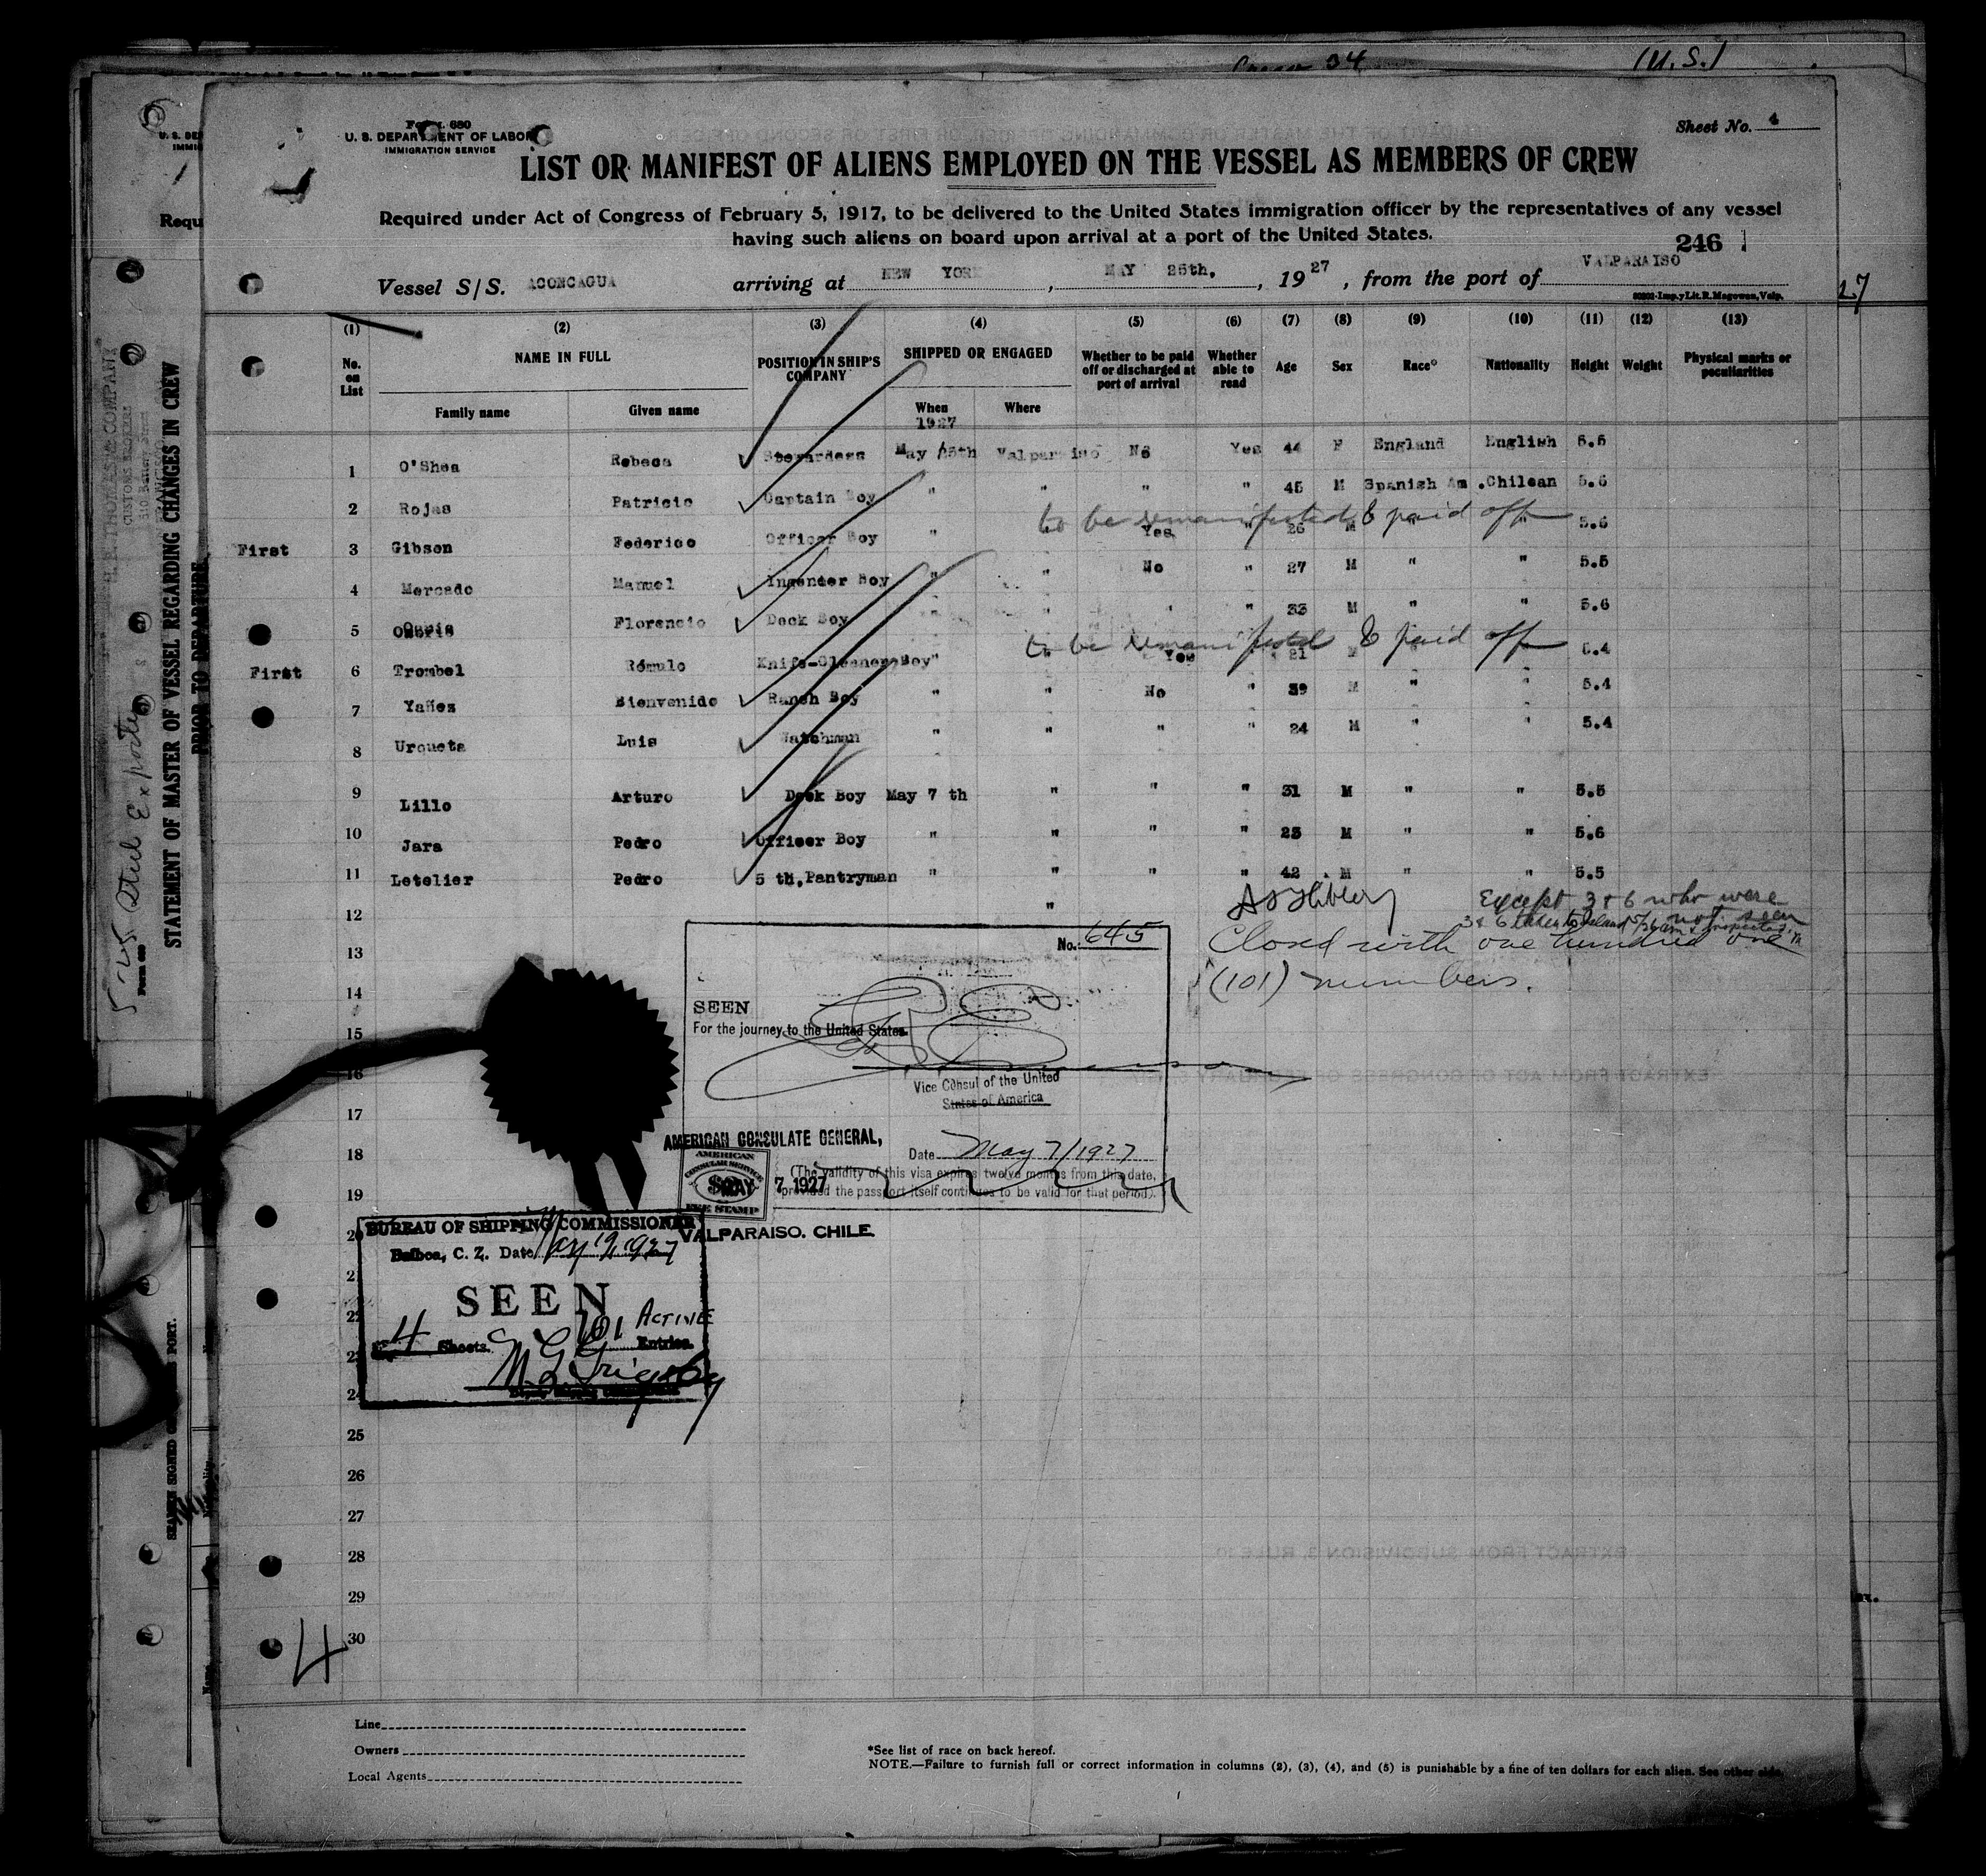 (U.S.)
Form 680
U. S. DEPARTMENT OF LABOR
IMMIGRATION SERVICE
Sheet No. 4
LIST OR MANIFEST OF ALIENS EMPLOYED ON THE VESSEL AS MEMBERS OF CREW
Required under Act of Congress of February 5, 1917, to be delivered to the United States immigration officer by the representatives of any vessel
having such aliens on board upon arrival at a port of the United States.
246
Vessel S/S. ACONCAGUA arriving at NEW YORK, MAY 25th, 1927, from the port of VALPARAISO
(1) (2) (3) (4) (5) (6) (7) (8) (9) (10) (11) (12) (13)
No. on List NAME IN FULL POSITION IN SHIP'S COMPANY SHIPPED OR ENGAGED Whether to be paid off or discharged at port of arrival Whether able to read Age Sex Race* Nationality Height Weight Physical marks or peculiarities
Family name Given name When Where
1927
1 O'Shea Rebeca Stewardess May 5th Valparaiso No Yes 44 F England English 5.5
2 Rojas Patricio Captain Boy " " " " 45 M Spanish Am. Chilean 5.6
to be remanifested & paid off
First 3 Gibson Federico Officer Boy " Yes " 26 M " " 5.6
4 Mercado Manuel Ingeneer Boy " " No " 27 M " " 5.5
5 Florencio Deck Boy " " " " 33 M " " 5.6
to be remanifested & paid off
First 6 Trombel Rómulo Knife-Cleener Boy " " Yes " 21 M 5.4
7 Yañez Bienvenido Ranch Boy " " No " 39 M " " 5.4
8 Urqueta Luis Watchman " " " " 24 M " " 5.4
9 Lillo Arturo Deck Boy May 7 th " " " 31 M " " 5.5
10 Jara Pedro Officer Boy " " " " 23 M " " 5.6
11 Letelier Pedro 5 th, Pantryman " " " " 42 M " " 5.5
12 "
Except 3 & 6 who were
not seen
Closed with one hundred one
(101) members.
13
14
15
16
17
18
19
20
21
22
23
24
25
26
27
28
29
30
No. 645
SEEN
For the journey to the United States.
Vice Consul of the United
States of America
AMERICAN CONSULATE GENERAL,
Date May 7/1927
(The validity of this visa expires twelve months from this date,
provided the passport itself continues to be valid for that period).
AMERICAN
CONSULAR SERVICE
FEE STAMP
MAY 7 1927
VALPARAISO. CHILE.
BUREAU OF SHIPPING COMMISSIONER
Balboa, C. Z. Date May 19, 1927
SEEN
4 Sheets. 101 ACTIVE Entries.
4
Line
Owners
Local Agents
*See list of race on back hereof.
NOTE.—Failure to furnish full or correct information in columns (2), (3), (4), and (5) is punishable by a fine of ten dollars for each alien. See other side.
STATEMENT OF MASTER OF VESSEL REGARDING CHANGES IN CREW
PRIOR TO DEPARTURE
CUSTOMS BROKERS
Steel Exporter
Requ
27